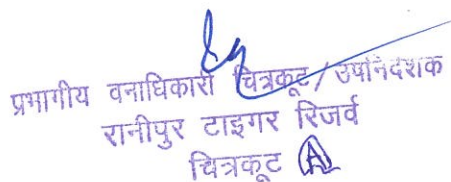 प्रभागीय वनाधिकारी चित्रकूट/उपनिदेशक
रानीपुर टाइगर रिजर्व
चित्रकूट A